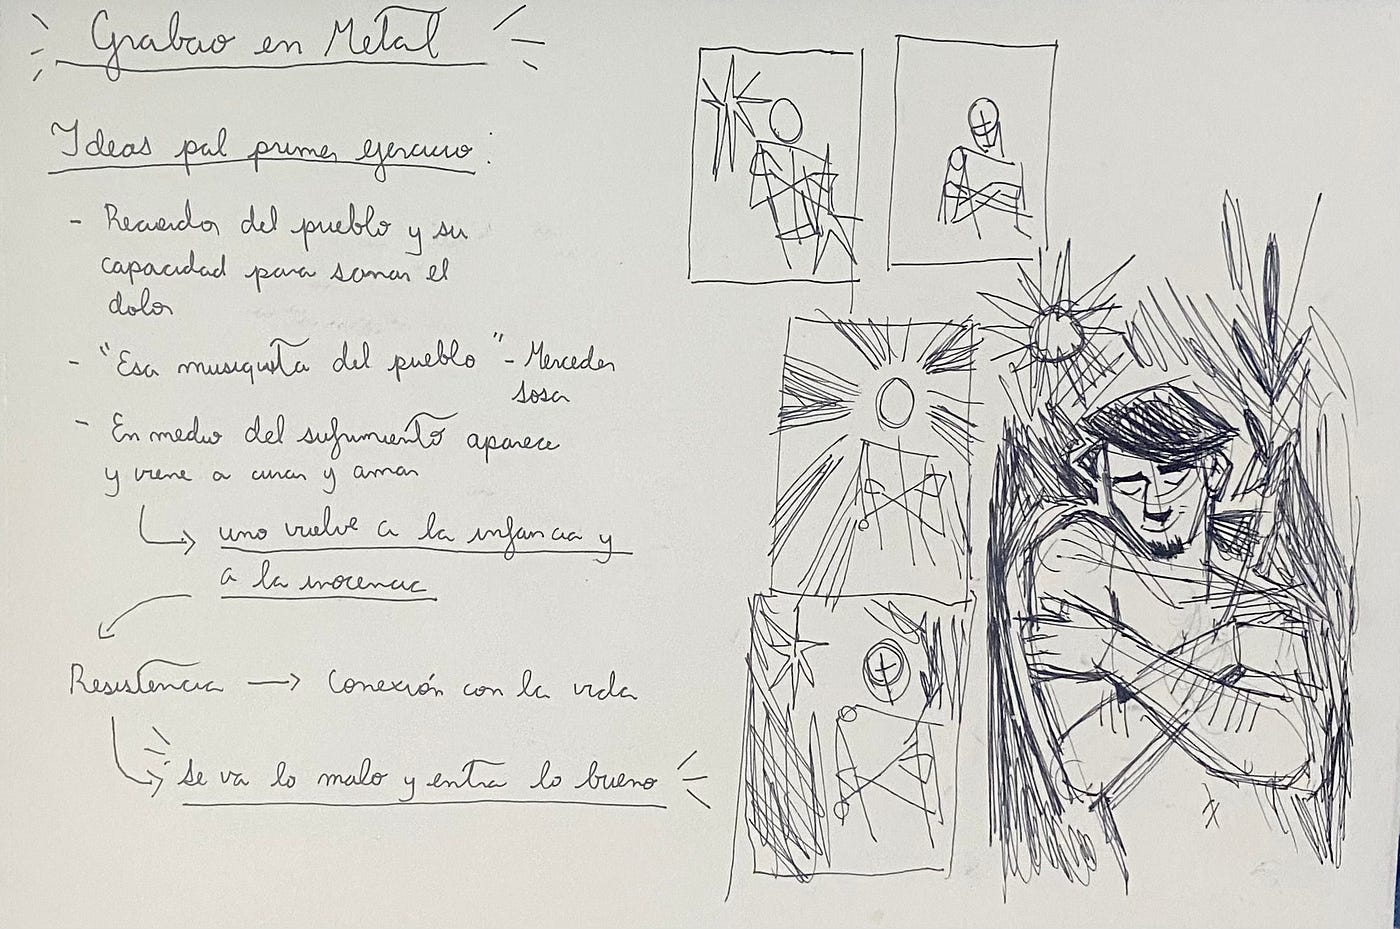 Grabao en Metal
Ideas pal primer ejercicio:
- Recuerdos del pueblo y su
capacidad para sanar el
dolor
- "Esa musiquita del pueblo" - Mercedes
Sosa
- En medio del sufrimiento aparece
y viene a curar y amar
uno vuelve a la infancia y
a la inocencia
Resistencia → Conexión con la vida
se va lo malo y entra lo bueno